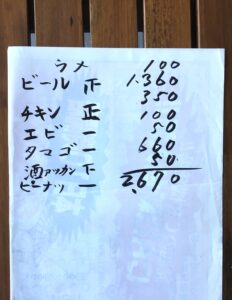 ウメ 100
ビール 正 1.360
350
チキン 正 100
エビ 一 50
タマゴ 一 660
酒アツカン 下 50
ピーナツ 一 2,670